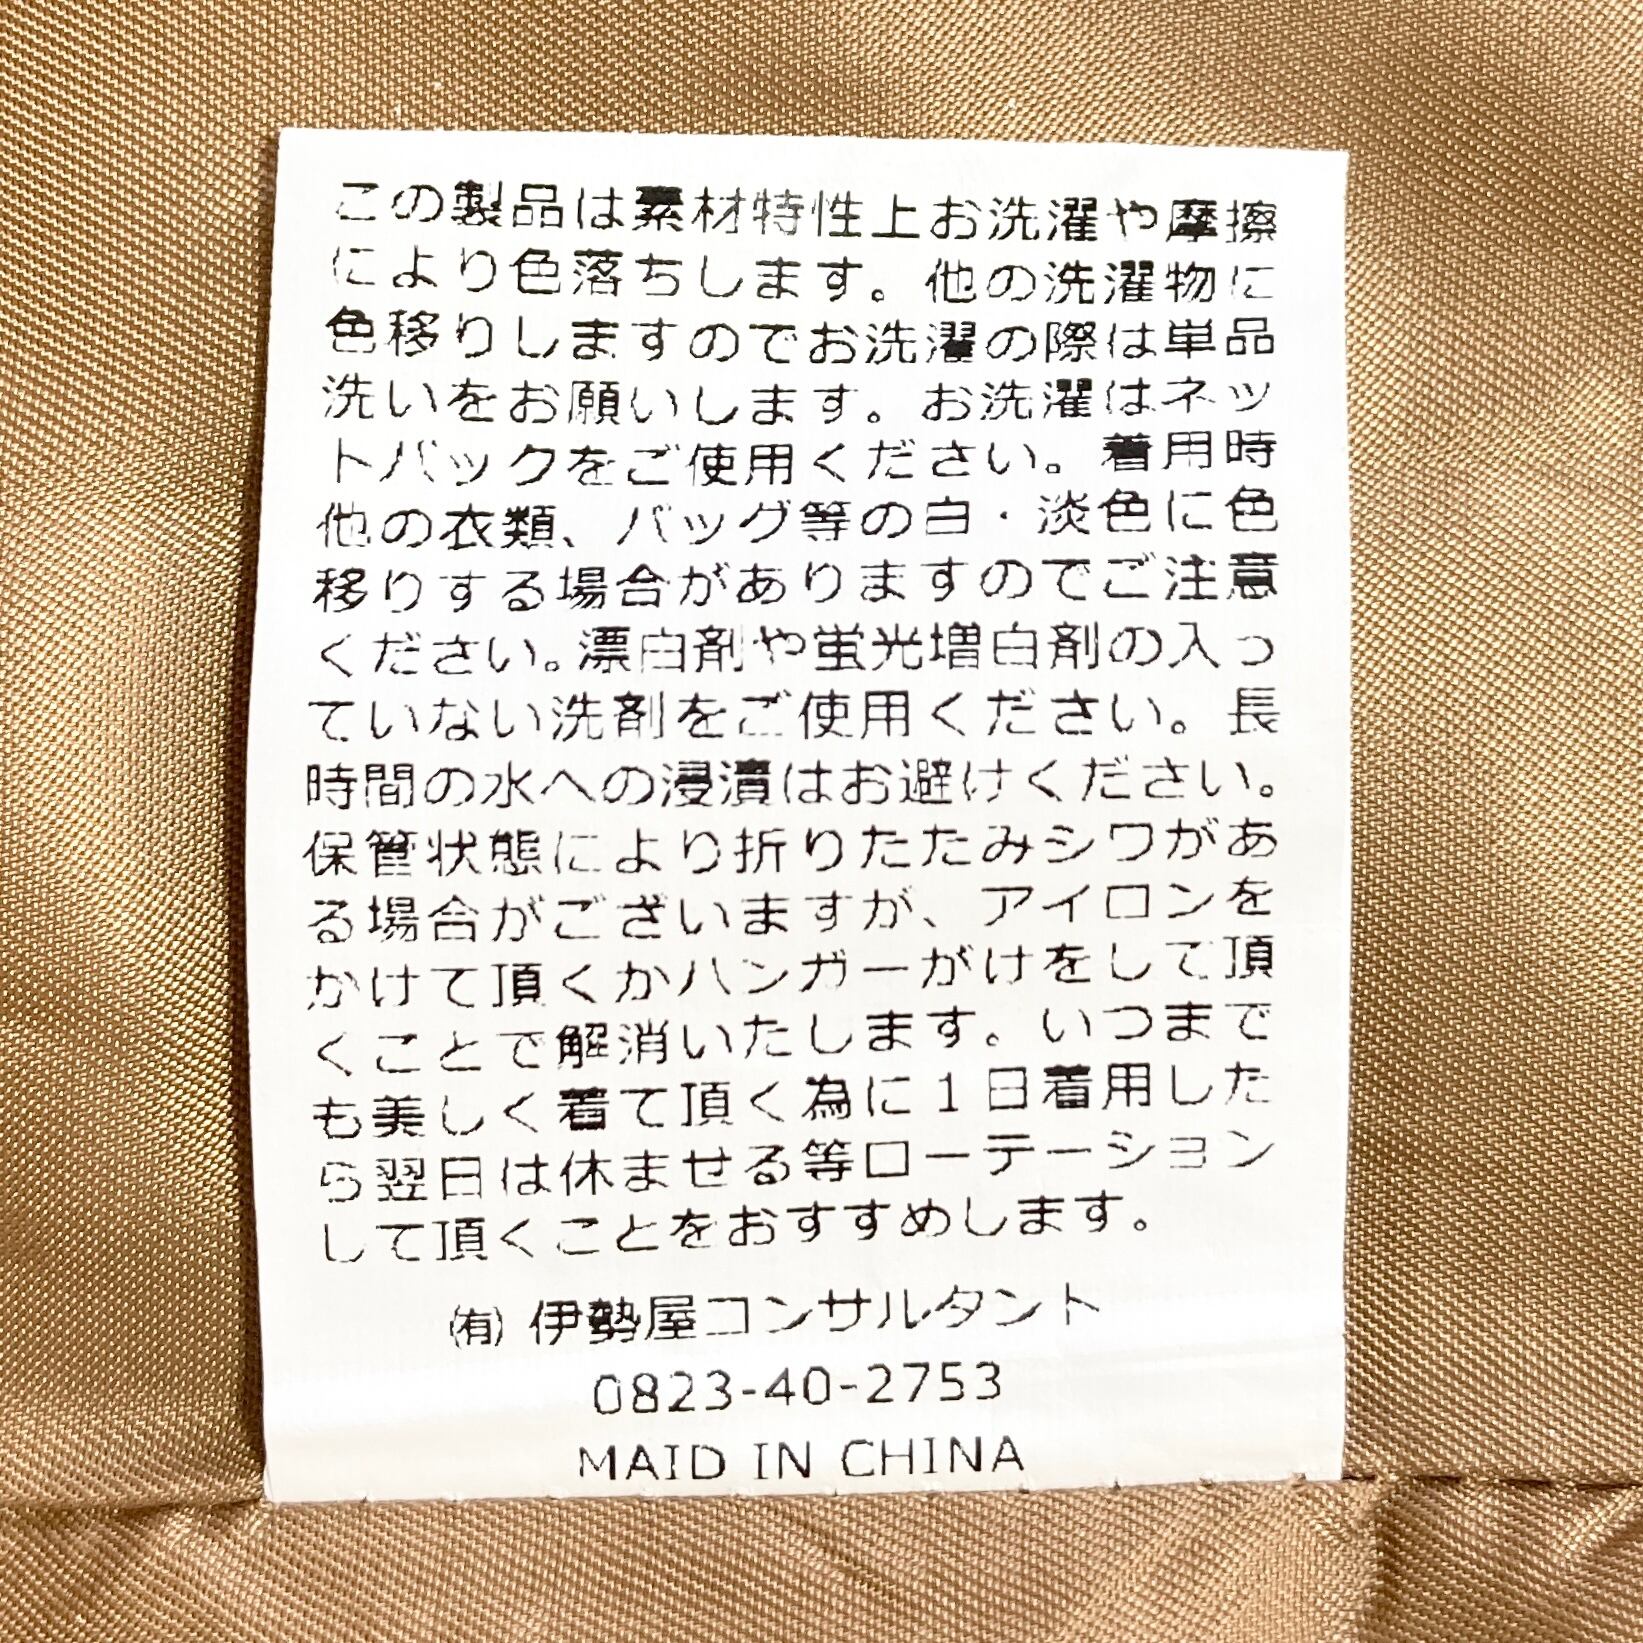 この製品は素材特性上お洗濯や摩擦
により色落ちします。他の洗濯物に
色移りしますのでお洗濯の際は単品
洗いをお願いします。お洗濯はネッ
トバックをご使用ください。着用時
他の衣類、バッグ等の白・淡色に色
移りする場合がありますのでご注意
ください。漂白剤や蛍光増白剤の入っ
ていない洗剤をご使用ください。長
時間の水への浸漬はお避けください。
保管状態により折りたたみシワがあ
る場合がございますが、アイロンを
かけて頂くかハンガーがけをして頂
くことで解消いたします。いつまで
も美しく着て頂く為に1日着用した
ら翌日は休ませる等ローテーション
して頂くことをおすすめします。
㈲ 伊勢屋コンサルタント
0823-40-2753
MAID IN CHINA